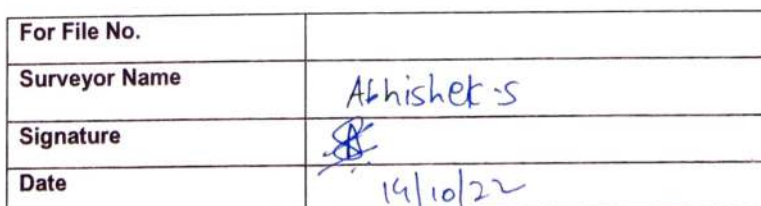 For File No.
Surveyor Name Abhishek.S
Signature
Date 14/10/22